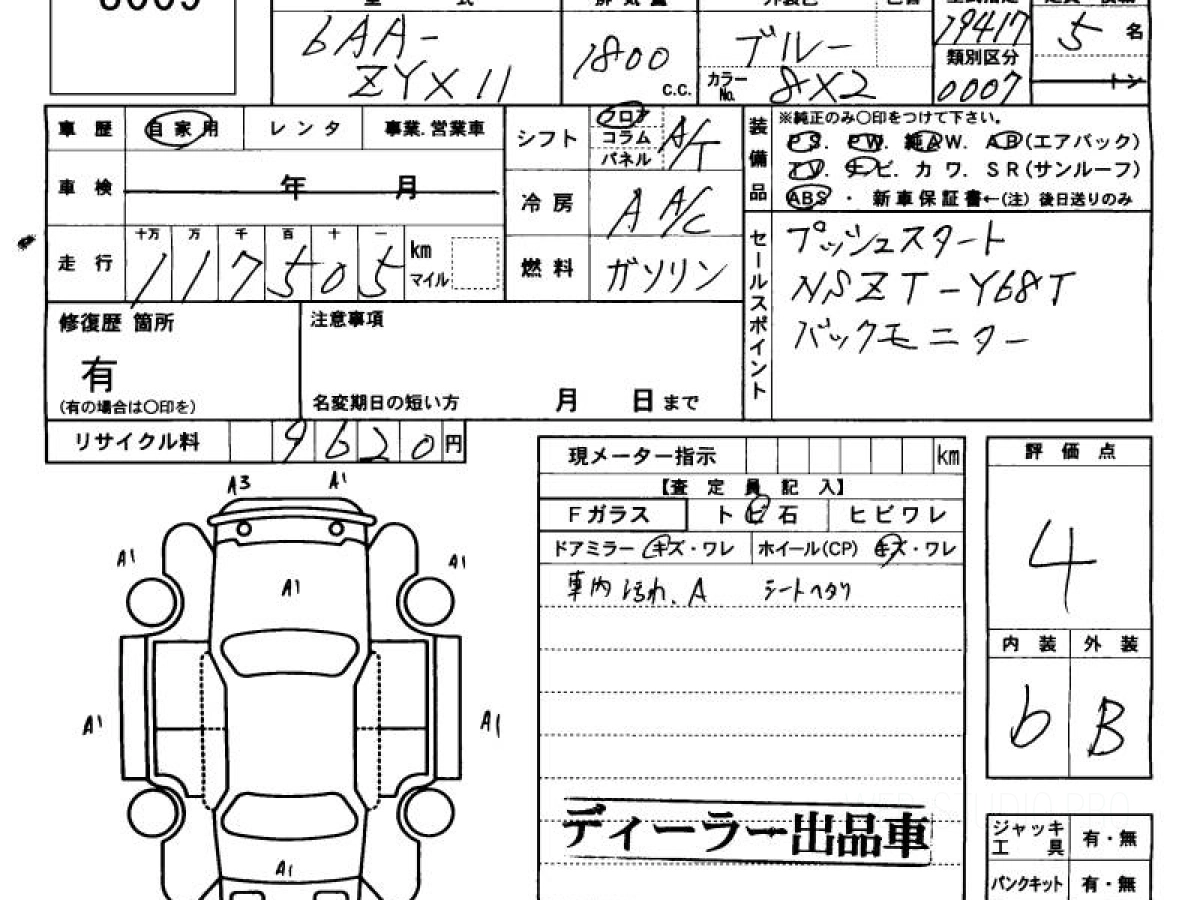 6AA-
ZYX11
1800
C.C.
ブルー
カラーNo. 8X2
19417
類別区分
0007
5 名
トン
車歴 自家用 レンタ 事業.営業車
車検 年 月
走行 十万 万 千 百 十 一
117505 km
マイル
シフト フロア コラム パネル A/T
冷房 A A/C
燃料 ガソリン
装備品
※純正のみ〇印をつけて下さい。
PS. PW. 純AW. AB(エアバック)
TV. ナビ. カワ. SR(サンルーフ)
ABS ・ 新車保証書←(注) 後日送りのみ
セールスポイント
プッシュスタート
NSZT-Y68T
バックモニター
修復歴 箇所
有
(有の場合は〇印を)
注意事項
名変期日の短い方 月 日まで
リサイクル料 9620 円
現メーター指示 km
【査定員記入】
Fガラス トビ石 ヒビワレ
ドアミラー キズ・ワレ ホイール(CP) キズ・ワレ
車内汚れ、A シートヘタリ
ディーラー出品車
評価点
4
内装 外装
b B
ジャッキ 工具 有・無
パンクキット 有・無
A3 A1
A1 A1
A1
A1 A1
A1